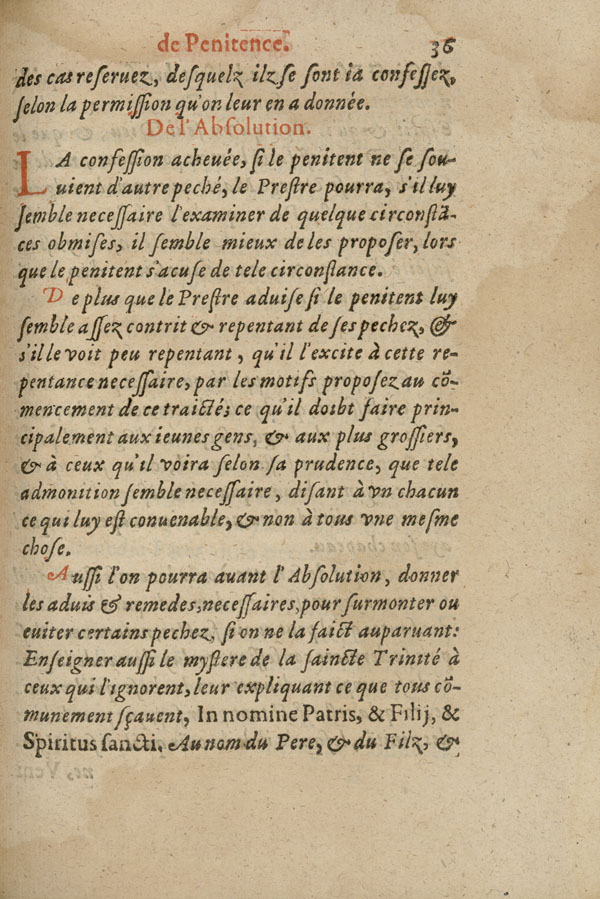 de Penitence. 36
des cas reseruez, desquelz ilz se sont ia confessez,
selon la permission qu'on leur en a donnée.
De l'Absolution.
LA confession acheuée, si le penitent ne se sou-
uient d'autre peché, le Prestre pourra, s'il luy
semble necessaire l'examiner de quelque circonstā-
ces obmises, il semble mieux de les proposer, lors
que le penitent s'acuse de tele circonstance.
De plus que le Prestre aduise si le penitent luy
semble assez contrit & repentant de ses pechez, &
s'il le voit peu repentant, qu'il l'excite à cette re-
pentance necessaire, par les motifs proposez au cō-
mencement de ce traicté; ce qu'il doibt faire prin-
cipalement aux ieunes gens, & aux plus grossiers,
& à ceux qu'il voira selon sa prudence, que tele
admonition semble necessaire, disant à vn chacun
ce qui luy est conuenable, & non à tous vne mesme
chose.
Aussi l'on pourra auant l'Absolution, donner
les aduis & remedes, necessaires, pour surmonter ou
euiter certains pechez, si on ne la faict auparuant:
Enseigner aussi le mystere de la saincte Trinité à
ceux qui l'ignorent, leur expliquant ce que tous cō-
munement sçauent, In nomine Patris, & Filij, &
Spiritus sancti, Au nom du Pere, & du Filz, &